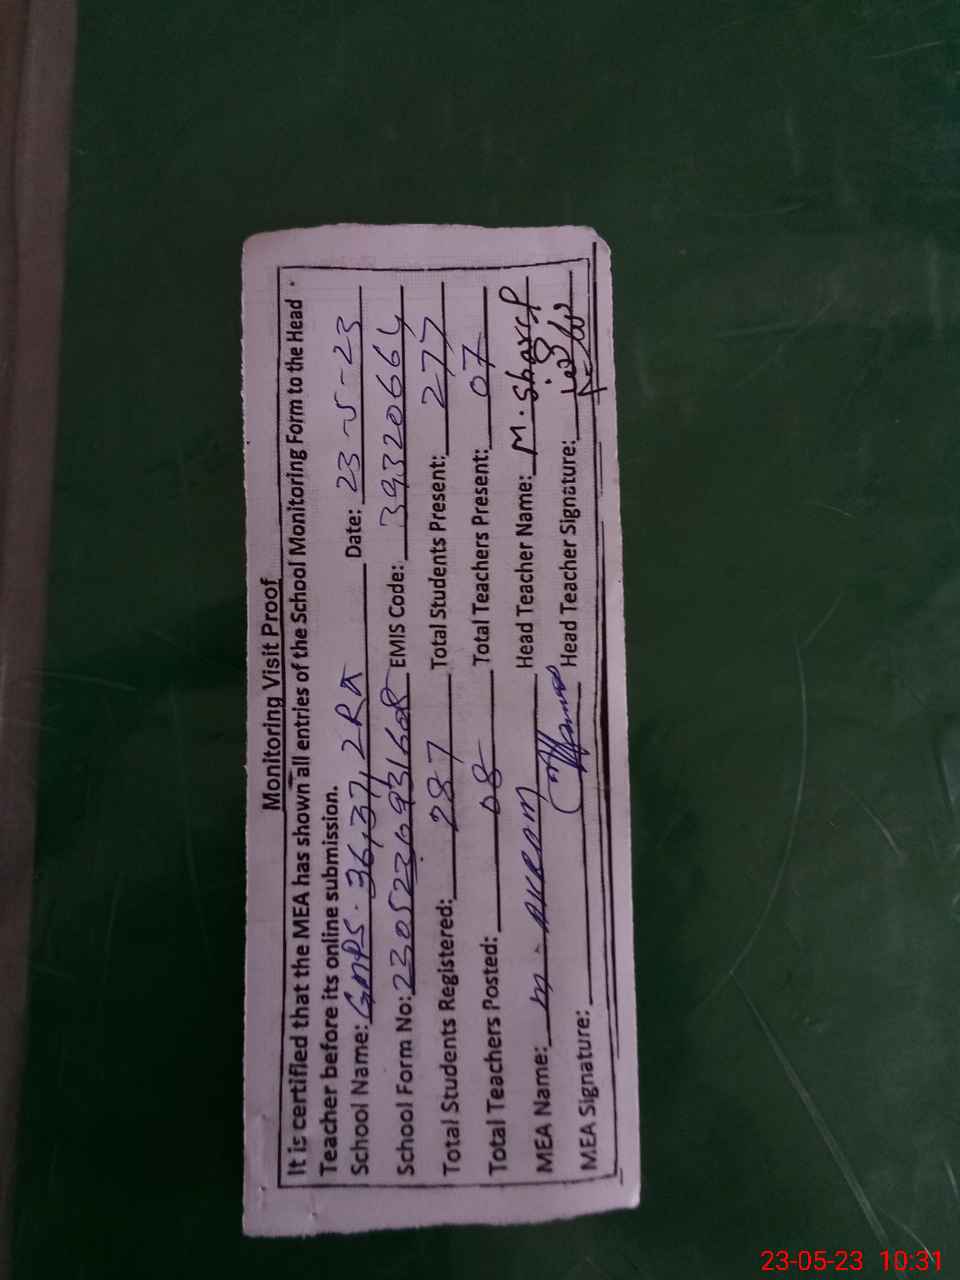 Monitoring Visit Proof
It is certified that the MEA has shown all entries of the School Monitoring Form to the Head
Teacher before its online submission.
School Name: GMPS. 36,37,2RA Date: 23-5-23
School Form No: EMIS Code: 39320664
Total Students Registered: 287 Total Students Present: 277
Total Teachers Posted: 08 Total Teachers Present: 07
MEA Name: M. AKRAM Head Teacher Name: M. Sharef
MEA Signature: Head Teacher Signature:
23-05-23 10:31